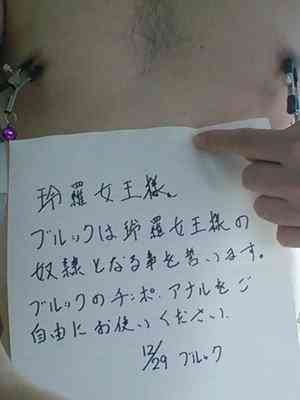 玲羅女王様。
ブルックは玲羅女王様の
奴隷となる事を誓います。
ブルックのチンポ、アナルをご
自由にお使いください。
12/29 ブルック